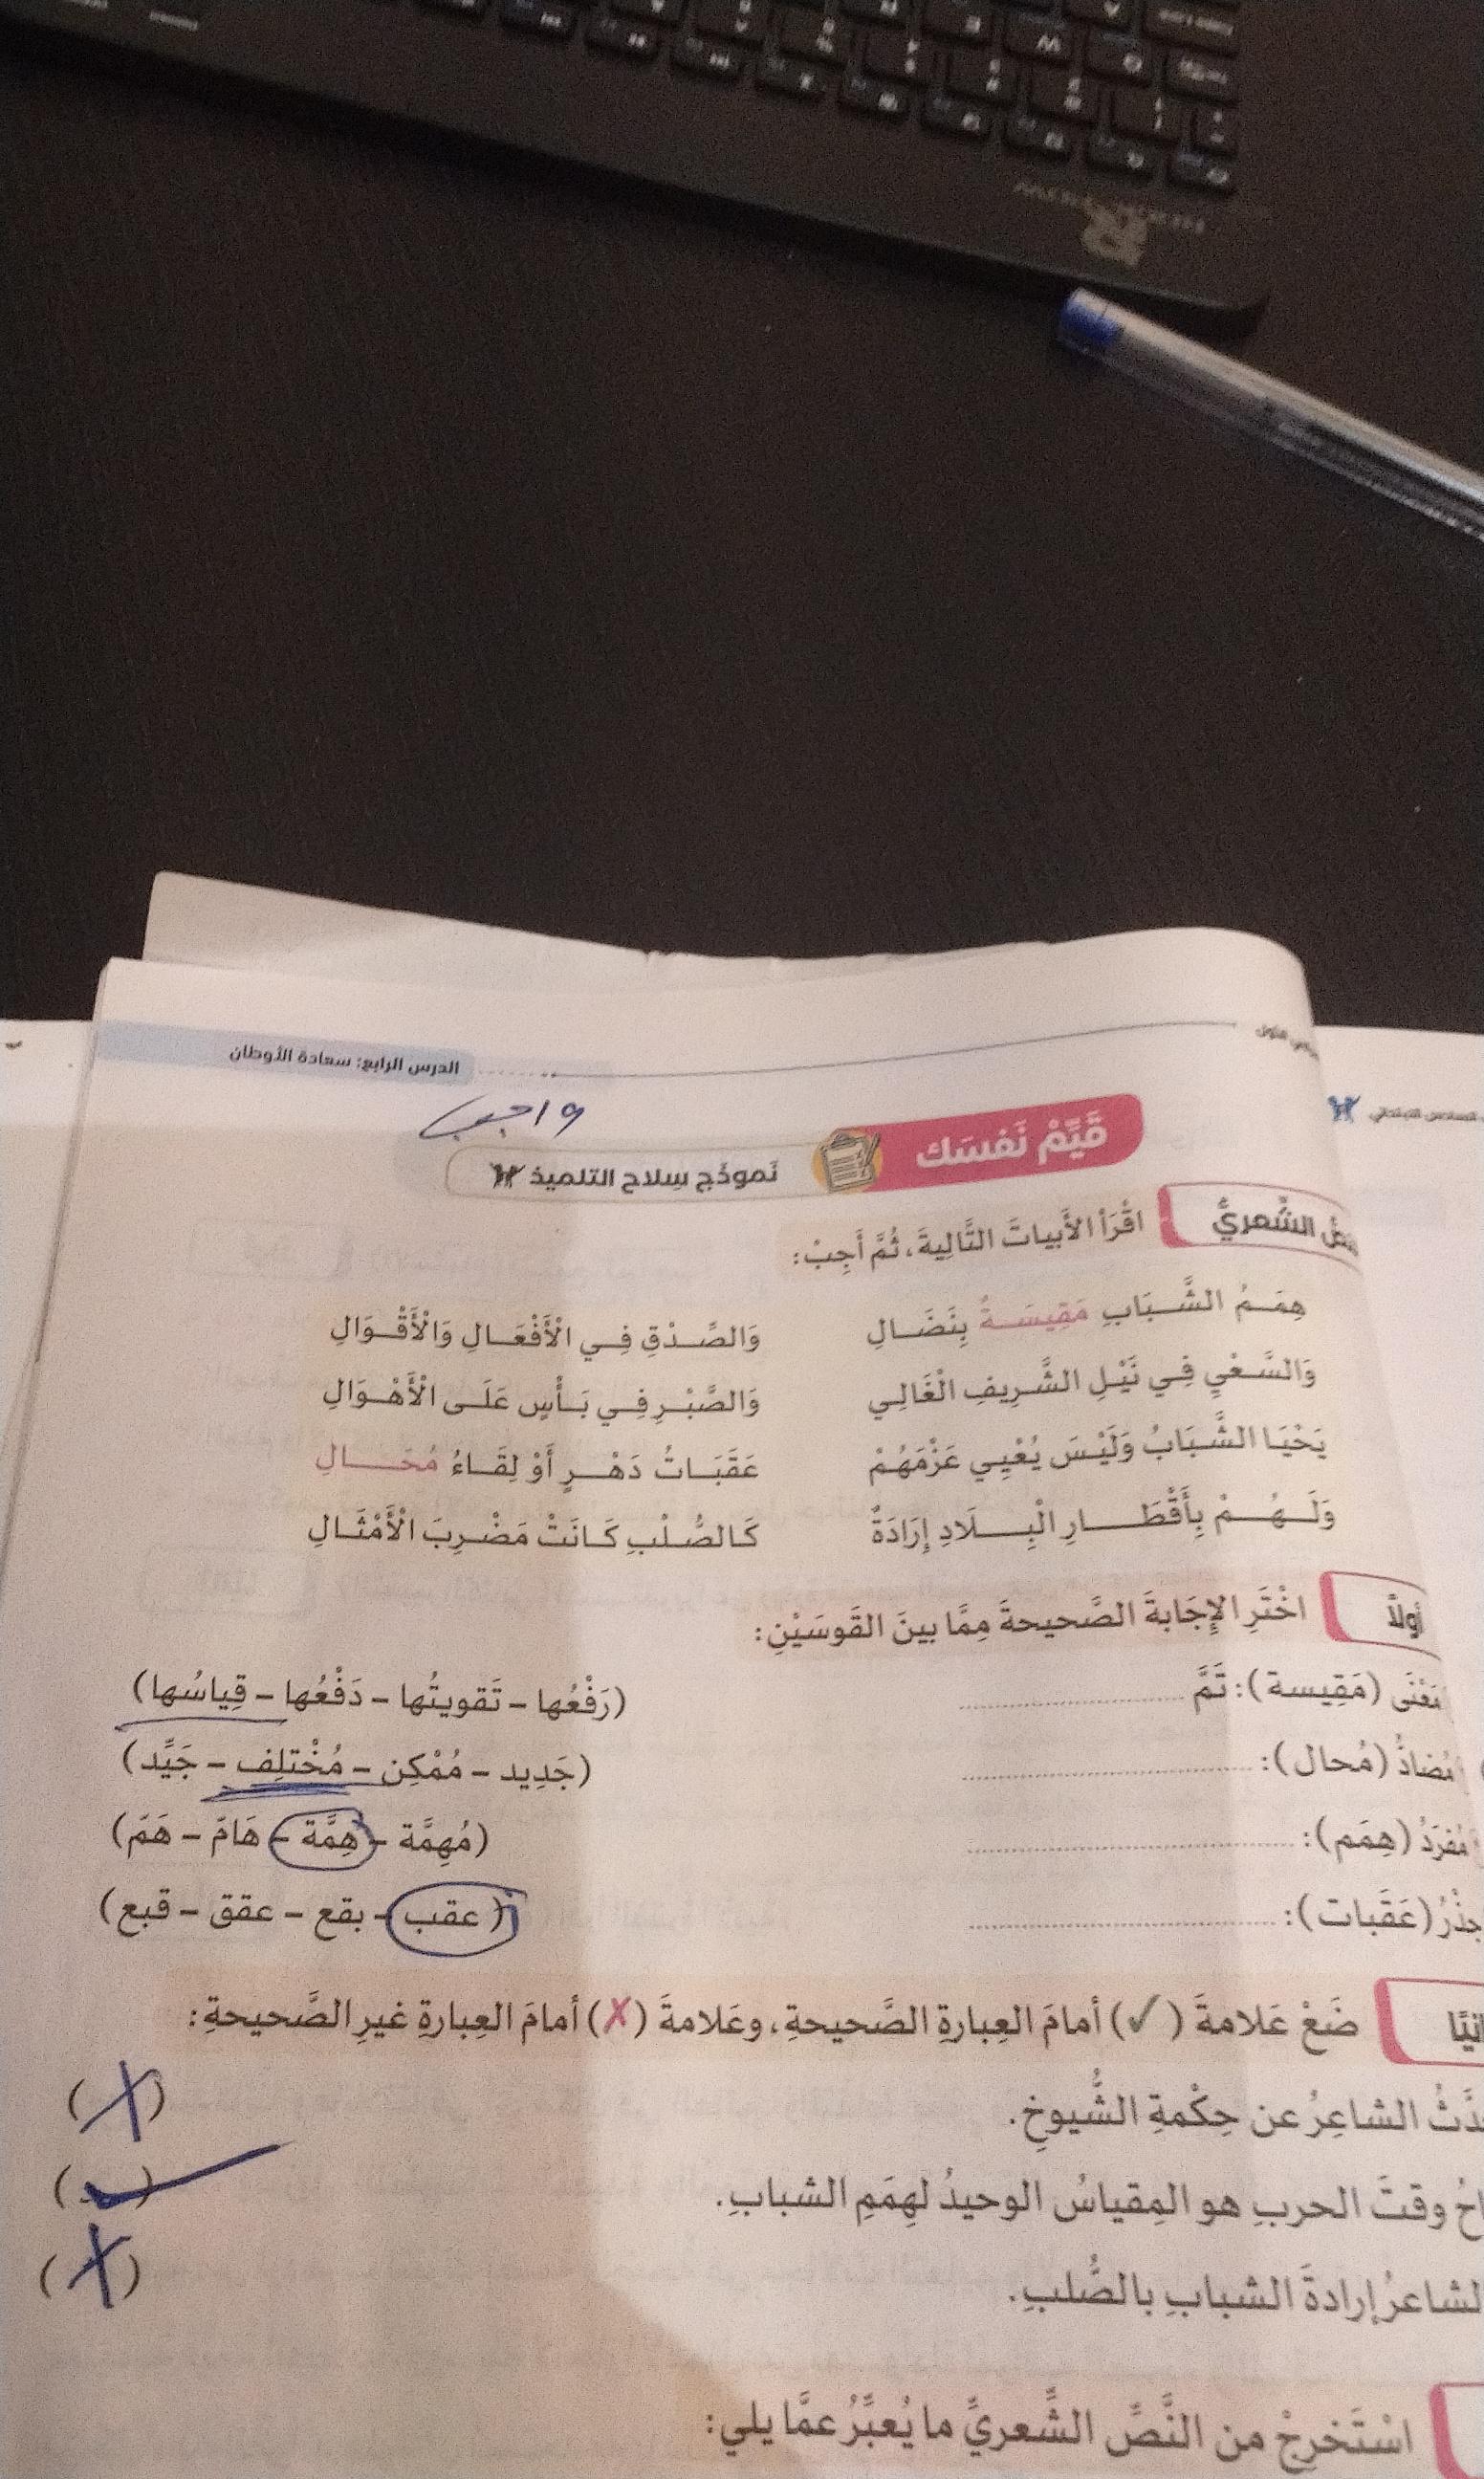 الدرس الرابع: سعادة الأوطان
واجب
قَيِّمْ نَفسَك
نَموذَج سِلاح التلميذ
الشِّعريُّ
اقْرَأ الأَبياتَ التَّالِيةَ، ثُمَّ أَجِبْ:
هِمَـمُ الشَّـبَابِ مَقِيسَـةٌ بِنَضَـالِ وَالصِّـدْقِ فِـي الْأَفْعَـالِ وَالْأَقْـوَالِ
وَالسَّـعْيِ فِـي نَيْلِ الشَّـرِيفِ الْغَالِـي وَالصَّبْـرِ فِـي بَـأْسٍ عَلَـى الْأَهْـوَالِ
يَحْيَـا الشَّـبَابُ وَلَيْـسَ يُعْيِـي عَزْمَهُـمْ عَقَبَـاتُ دَهْـرٍ أَوْ لِقَـاءُ مُحَـالِ
وَلَـهُـمْ بِأَقْطَـارِ الْبِـلَادِ إِرَادَةٌ كَـالصُّـلْبِ كَـانَتْ مَضْـرِبَ الْأَمْثَـالِ
أولًا
اخْتَرِ الإِجَابةَ الصَّحيحةَ مِمَّا بينَ القَوسَيْنِ:
مَعْنَى (مَقِيسة): تَمَّ (رَفْعُها – تَقويتُها – دَفْعُها – قِياسُها)
مُضادُّ (مُحال): (جَدِيد – مُمْكِن – مُخْتلِف – جَيِّد)
مُفرَدُ (هِمَم): (مُهِمَّة – هِمَّة – هَامّ – هَمّ)
جذْرُ (عَقَبات): (عقب – بقع – عقق – قبع)
ضَعْ عَلامةَ (✓) أمامَ العِبارةِ الصَّحيحةِ، وعَلامةَ (✗) أمامَ العِبارةِ غيرِ الصَّحيحةِ:
الشاعِرُ عن حِكْمةِ الشُّيوخِ. (✗)
وقتَ الحربِ هو المِقياسُ الوحيدُ لهِمَمِ الشبابِ. (✓)
إرادةَ الشبابِ بالصُّلبِ. (✗)
اسْتَخرِجْ من النَّصِّ الشِّعريِّ ما يُعبِّرُ عمَّا يلي: